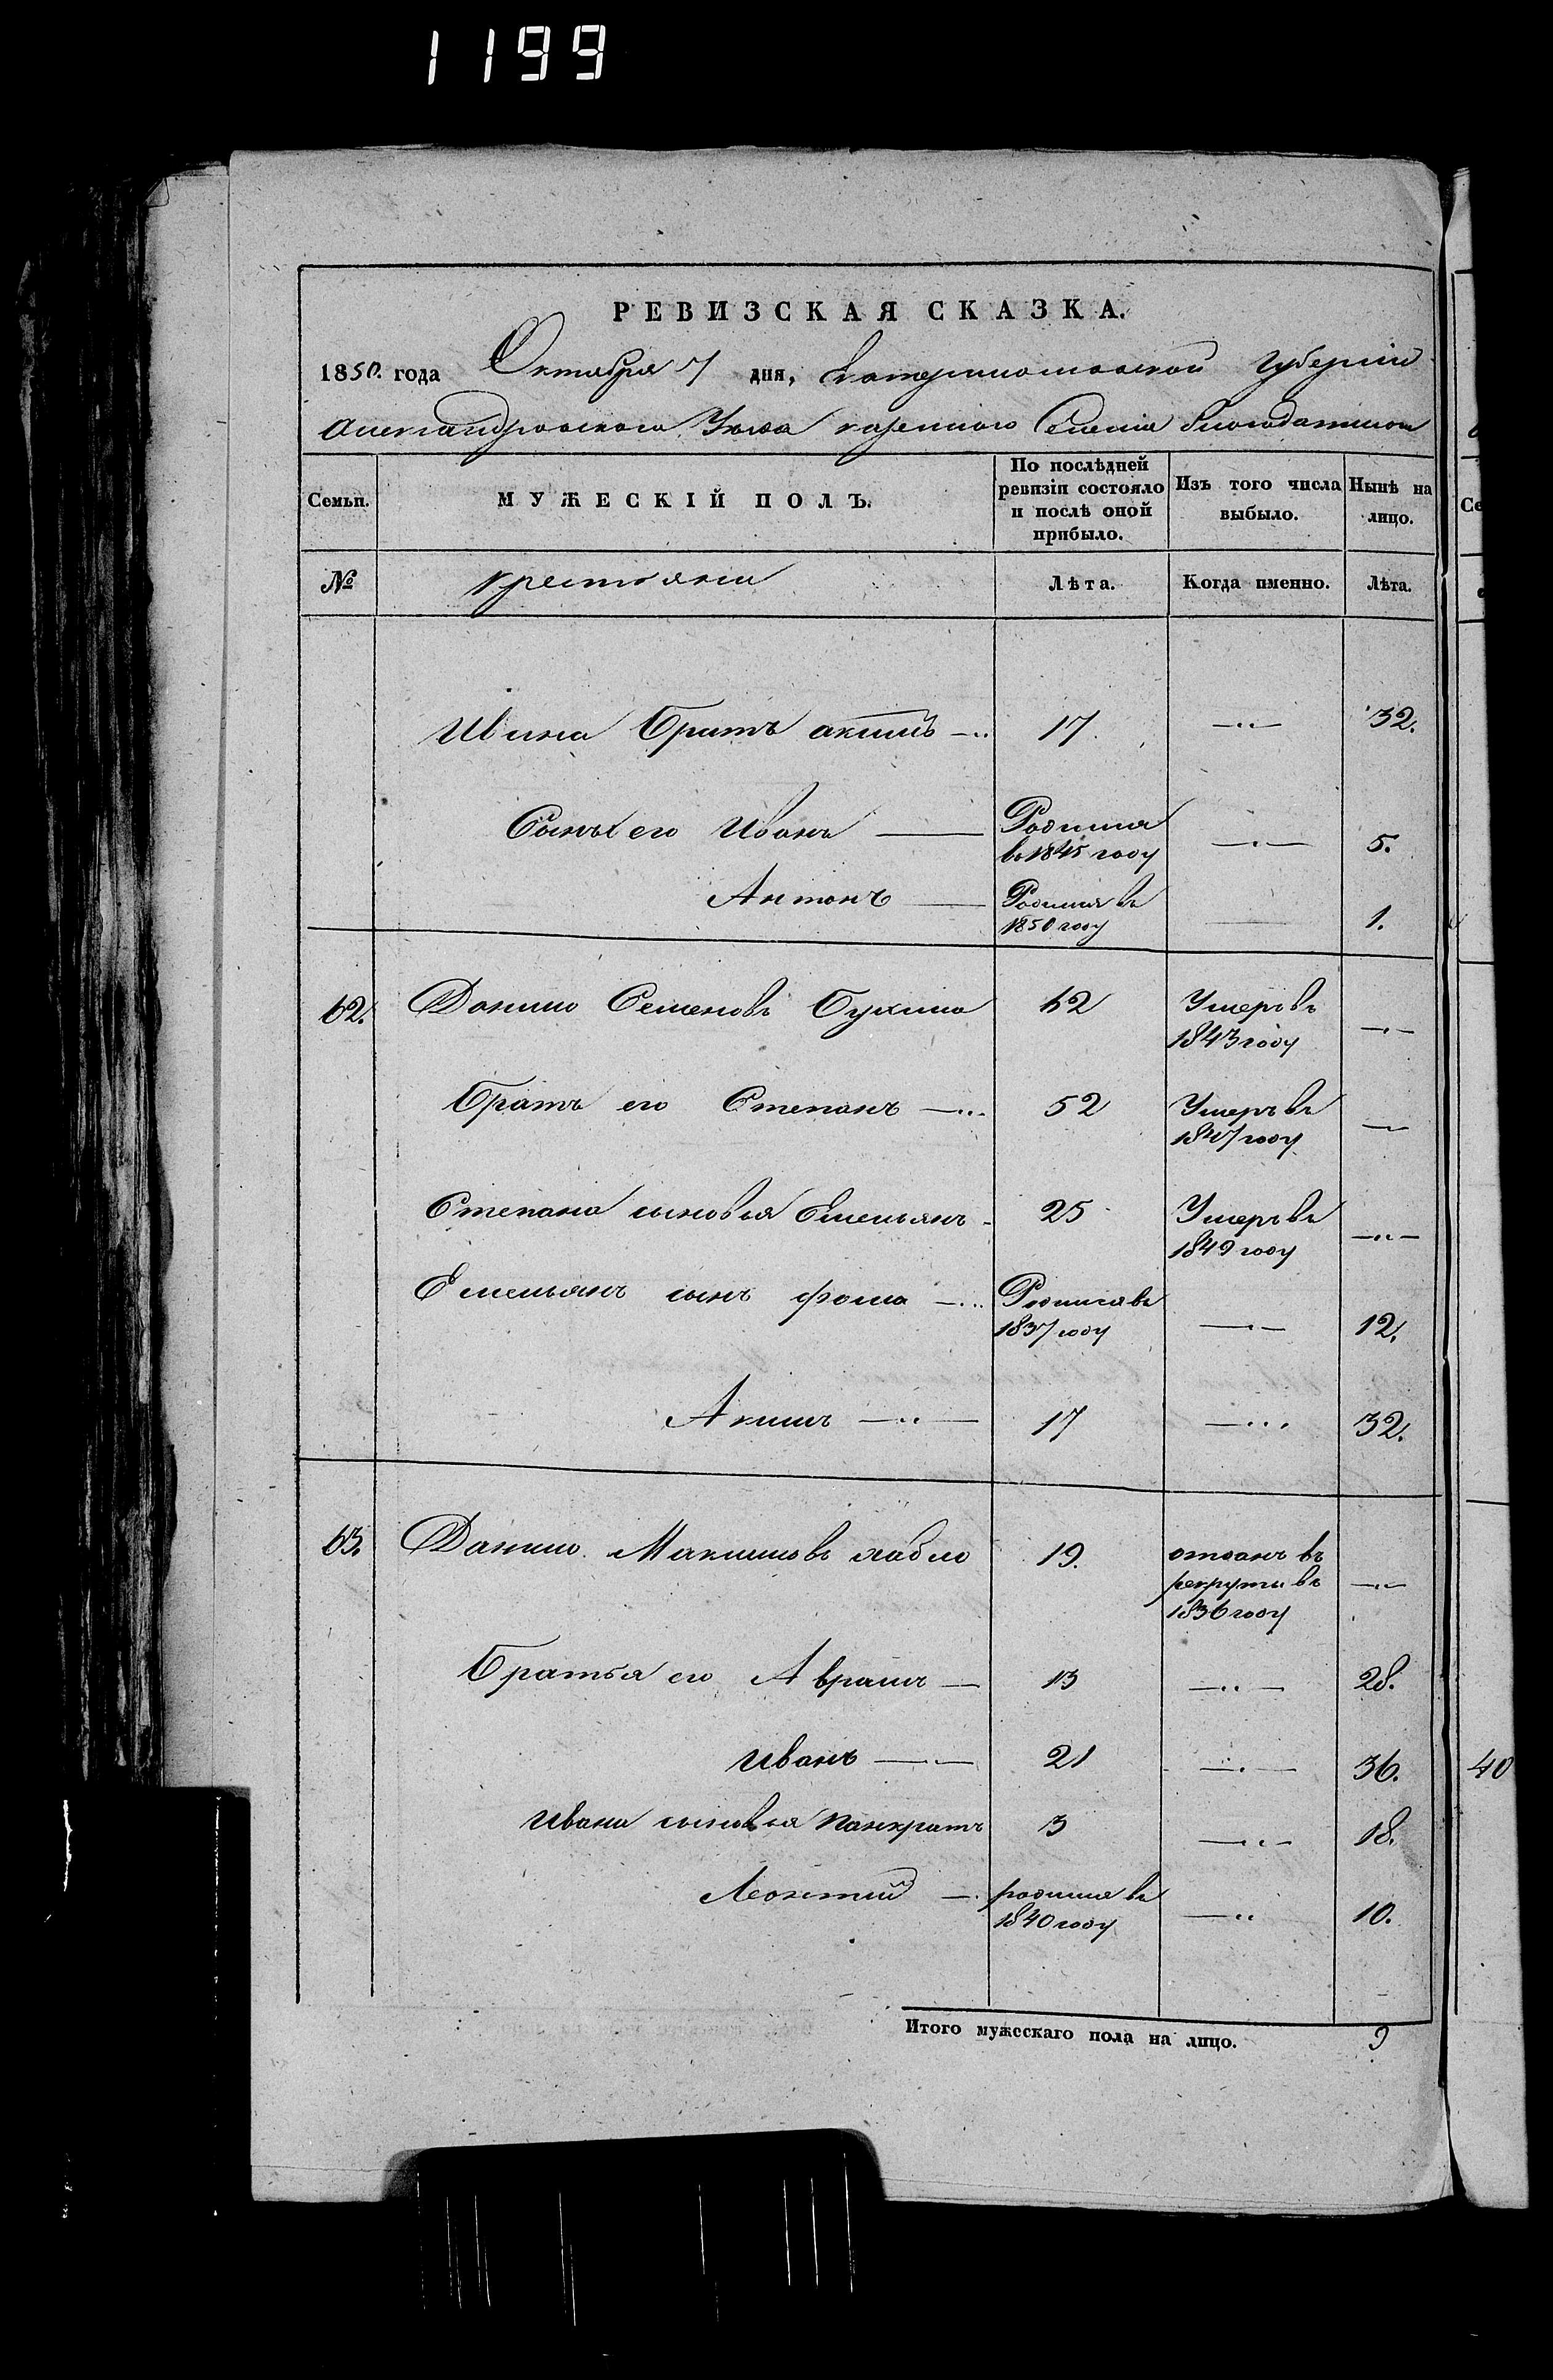 1199
РЕВИЗСКАЯ СКАЗКА.
1850. года Октября 7 дня, Екатеринославской Губернiи
Александровского Уезда казенного Селенiя Благодатного
Семьи.
МУЖЕСКІЙ ПОЛЪ.
По послѣдней ревизіи состояло и послѣ оной прибыло.
Изъ того числа выбыло.
Нынѣ на лицо.
№ крестьяни Лѣта. Когда именно. Лѣта.
Братъ 17. 32.
Сынъ его Иванъ Родился в 1845 году 5.
Антонъ Родился въ 1850 году 1.
62. Данило Семеновъ 62 Умеръ въ 1843 году
Братъ его Степанъ 52 Умеръ въ 1847 году
Степана сыновья Емельянъ 25 Умеръ въ 1849 году
Емельянъ сынъ фома Родился въ 1837 году 12.
Акимъ 17 32.
63. Данило Максимовъ 19. отданъ въ рекруты въ 1836 году
Братья его Аврамъ 13 28.
Иванъ 21 36.
Ивана сыновья Панкратъ 3 18.
Леонтий родился въ 1840 году 10.
Итого мужескаго пола на лицо. 9
40